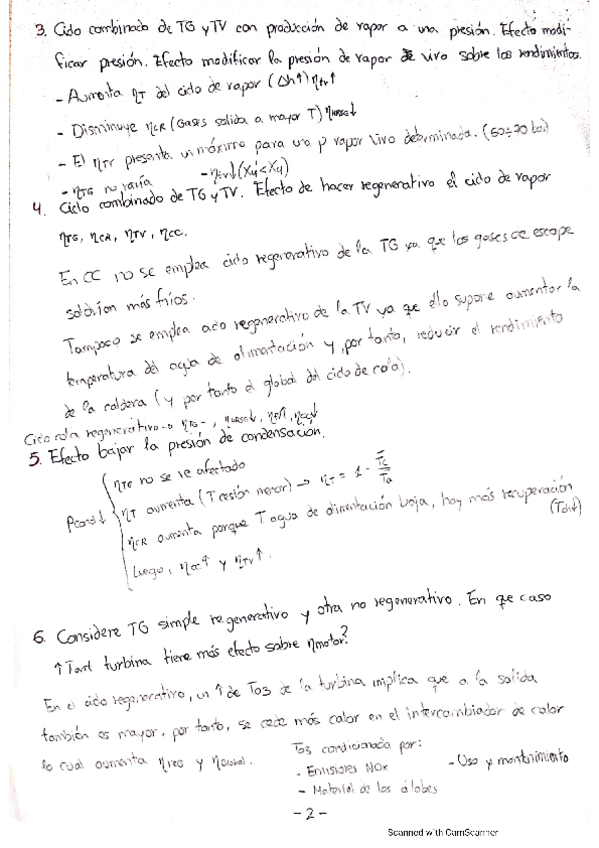 3. Ciclo combinado de TG y TV con producción de vapor a una presión. Efecto modi-
ficar presión. Efecto modificar la presión de vapor de vivo sobre los rendimientos.
- Aumenta ηT del ciclo de vapor (Δh↑) ηTV↑
- Disminuye ηCR (Gases salida a mayor T) ηHRSG↓
- El ηTV presenta un máximo para una p vapor vivo determinada. (50÷70 bar)
- ηTG no varía - ηTV↓ (X4'<X4)
4. Ciclo combinado de TG y TV. Efecto de hacer regenerativo el ciclo de vapor
ηTG, ηCR, ηTV, ηCC.
En CC no se emplea ciclo regenerativo de la TG ya que los gases de escape
saldrían más fríos.
Tampoco se emplea ciclo regenerativo de la TV ya que ello supone aumentar la
temperatura del agua de alimentación y, por tanto, reducir el rendimiento
de la caldera (y por tanto el global del ciclo de cola).
Ciclo cola regenerativo → ηTG -, ηHRSG↓, ηTV↑, ηCC↓
5. Efecto bajar la presión de condensación.
Pcond↓
ηTG no se ve afectado
ηT aumenta (T cesión menor) → ηT = 1 - Tc/Ta
ηCR aumenta porque T agua de alimentación baja, hay más recuperación
Luego, ηCC↑ y ηTV↑.
6. Considere TG simple regenerativo y otra no regenerativo. En que caso
↑Tant turbina tiene más efecto sobre ηmotor?
En el ciclo regenerativo, un ↑ de T03 de la turbina implica que a la salida
también es mayor, por tanto, se cede más calor en el intercambiador de calor
lo cual aumenta ηREG y ηglobal.
T03 condicionada por:
- Emisiones NOx
- Uso y mantenimiento
- Material de los álabes
- 2 -
Scanned with CamScanner